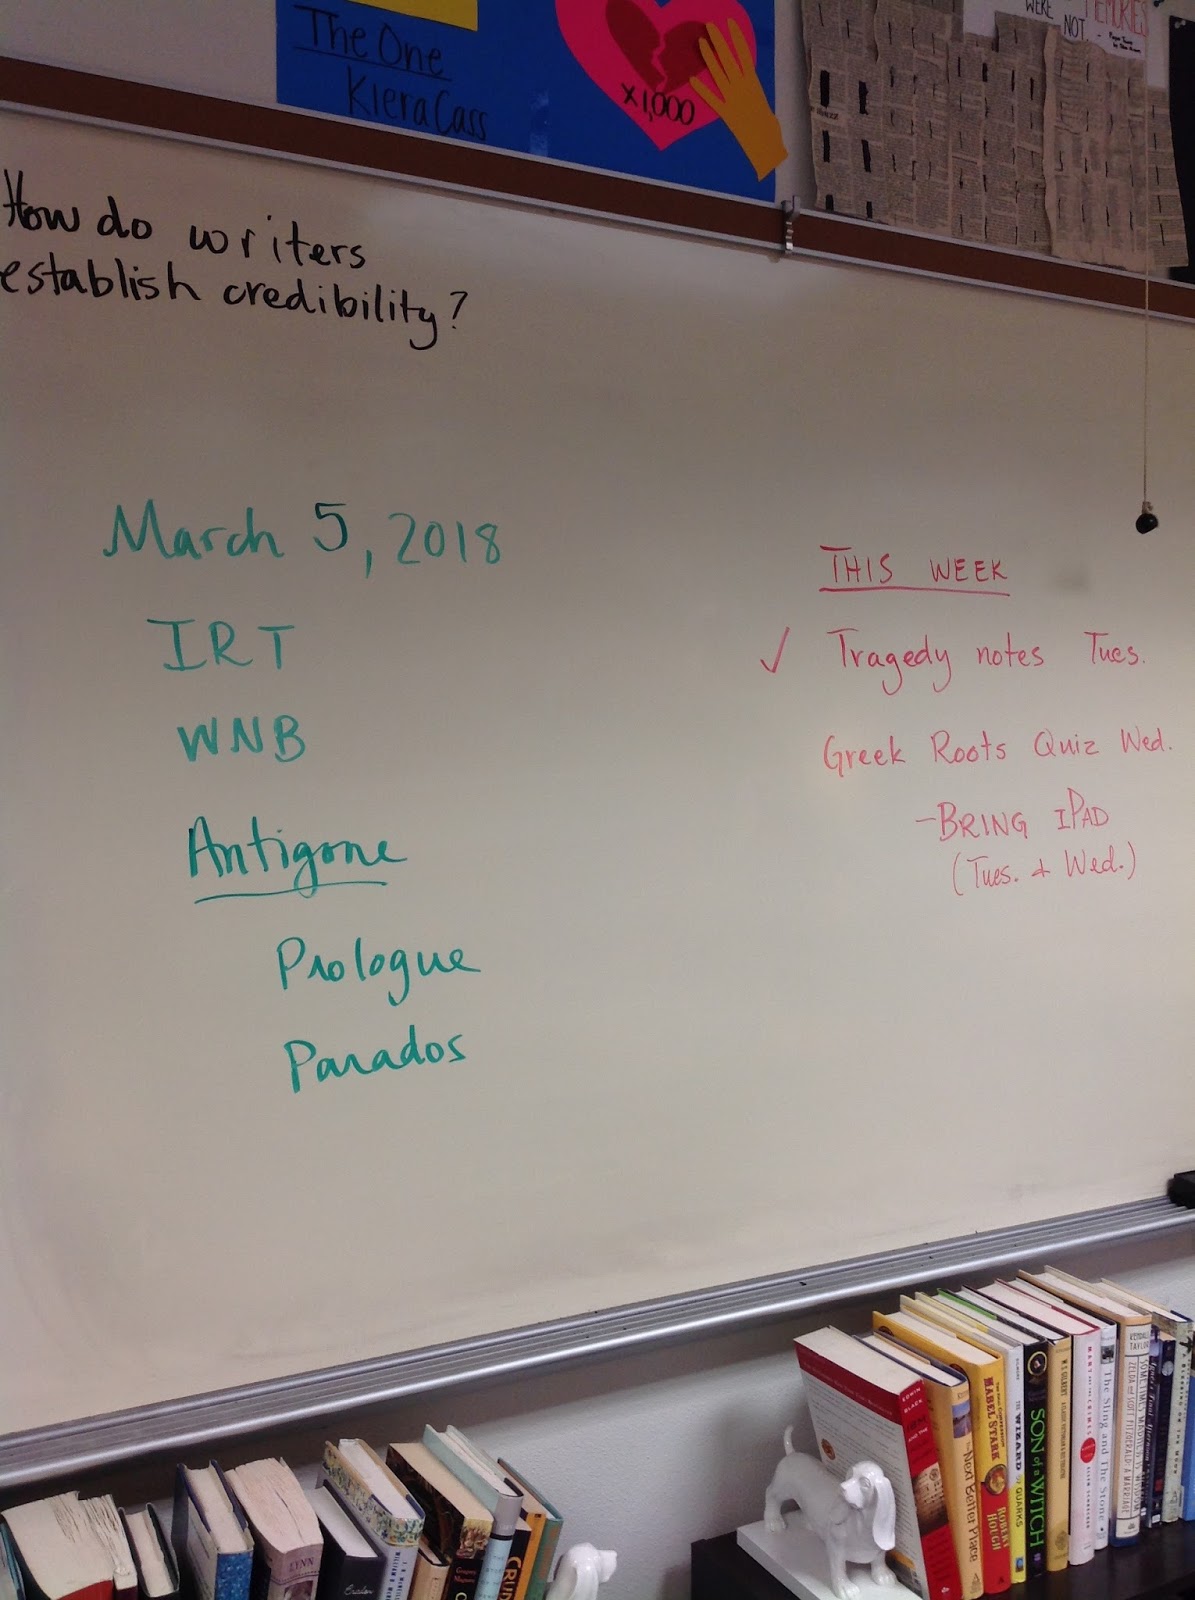 The One
Kiera Cass
x1,000
WERE NOT
MEMORIES
How do writers
establish credibility?
March 5, 2018
IRT
WNB
Antigone
Prologue
Parados
THIS WEEK
✓ Tragedy notes Tues.
Greek Roots Quiz Wed.
-BRING iPAD
(Tues. + Wed.)
EDWIN BLACK
Next Better Place
MABEL STARK
ROBERT HOUGH
THE WIZARD OF QUARKS
SON of a WITCH
The Sling and The Stone
KENDALL TAYLOR
SOMETIMES MADNESS IS WISDOM
ZELDA and SCOTT FITZGERALD: A MARRIAGE
LYNN